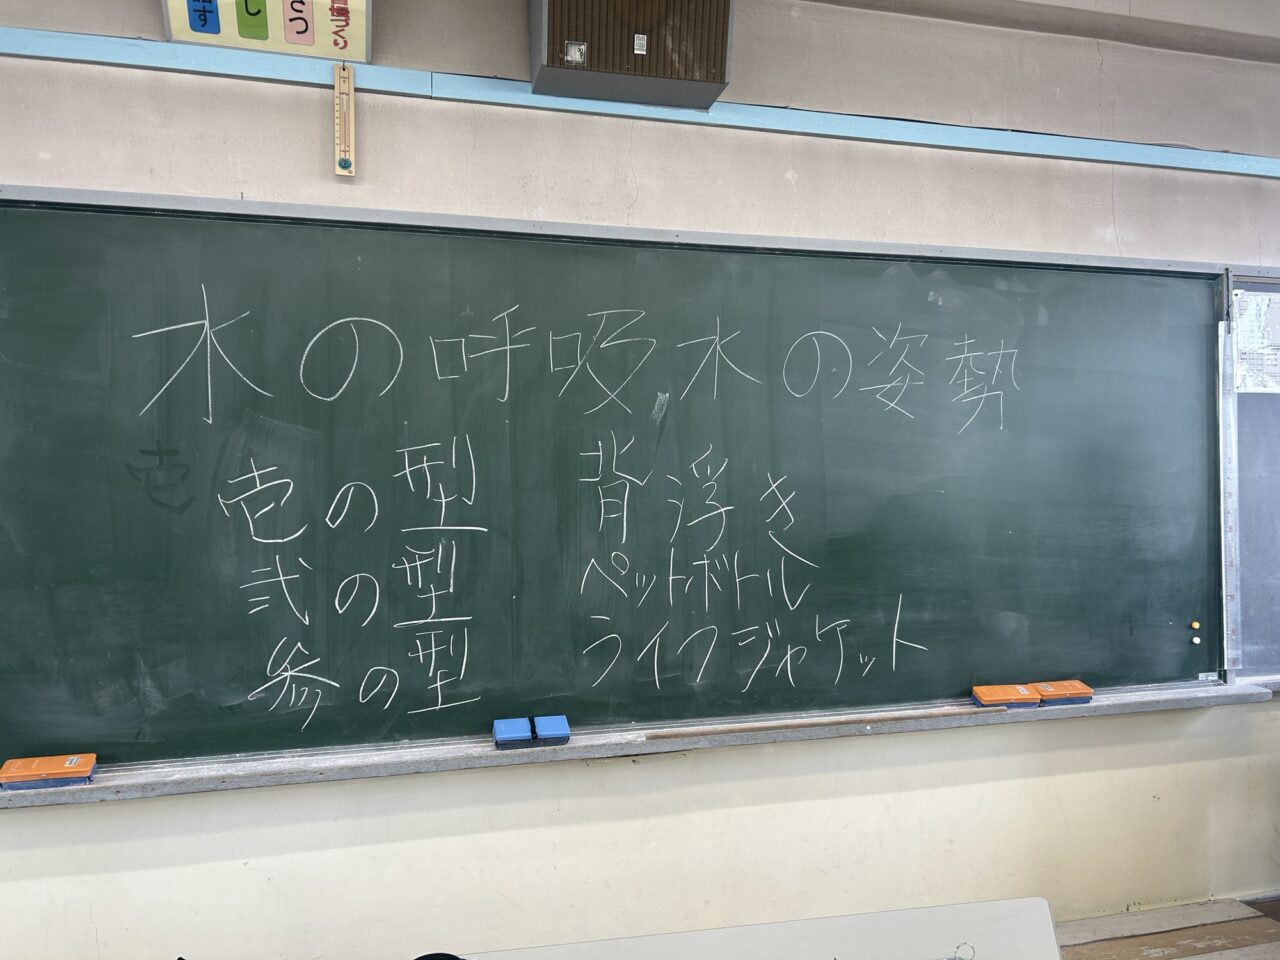 水の呼吸 水の姿勢
壱
壱の型 背浮き
弐の型 ペットボトル
参の型 ライフジャケット